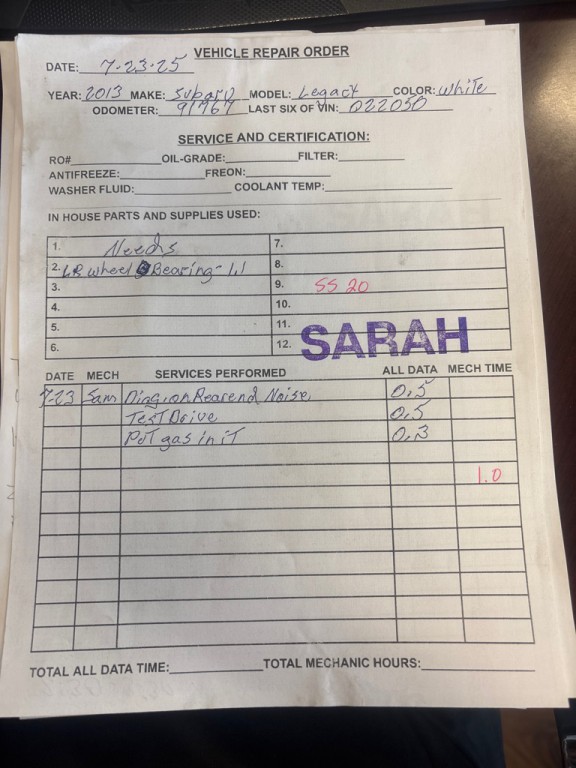 VEHICLE REPAIR ORDER
DATE: 7-23-25
YEAR: 2013 MAKE: Subaru MODEL: Legacy COLOR: White
ODOMETER: 91767 LAST SIX OF VIN: 022050
SERVICE AND CERTIFICATION:
RO# OIL-GRADE: FILTER:
ANTIFREEZE: FREON:
WASHER FLUID: COOLANT TEMP:
IN HOUSE PARTS AND SUPPLIES USED:
1. Needs 7.
2. LR wheel Bearing - 1.1 8.
3. 9. SS 20
4. 10.
5. 11.
6. 12. SARAH
DATE MECH SERVICES PERFORMED ALL DATA MECH TIME
7-23 Sam Diag, on Rearend Noise 0.5
Test Drive 0.5
PuT gas in iT 0.3
1.0
TOTAL ALL DATA TIME: TOTAL MECHANIC HOURS: